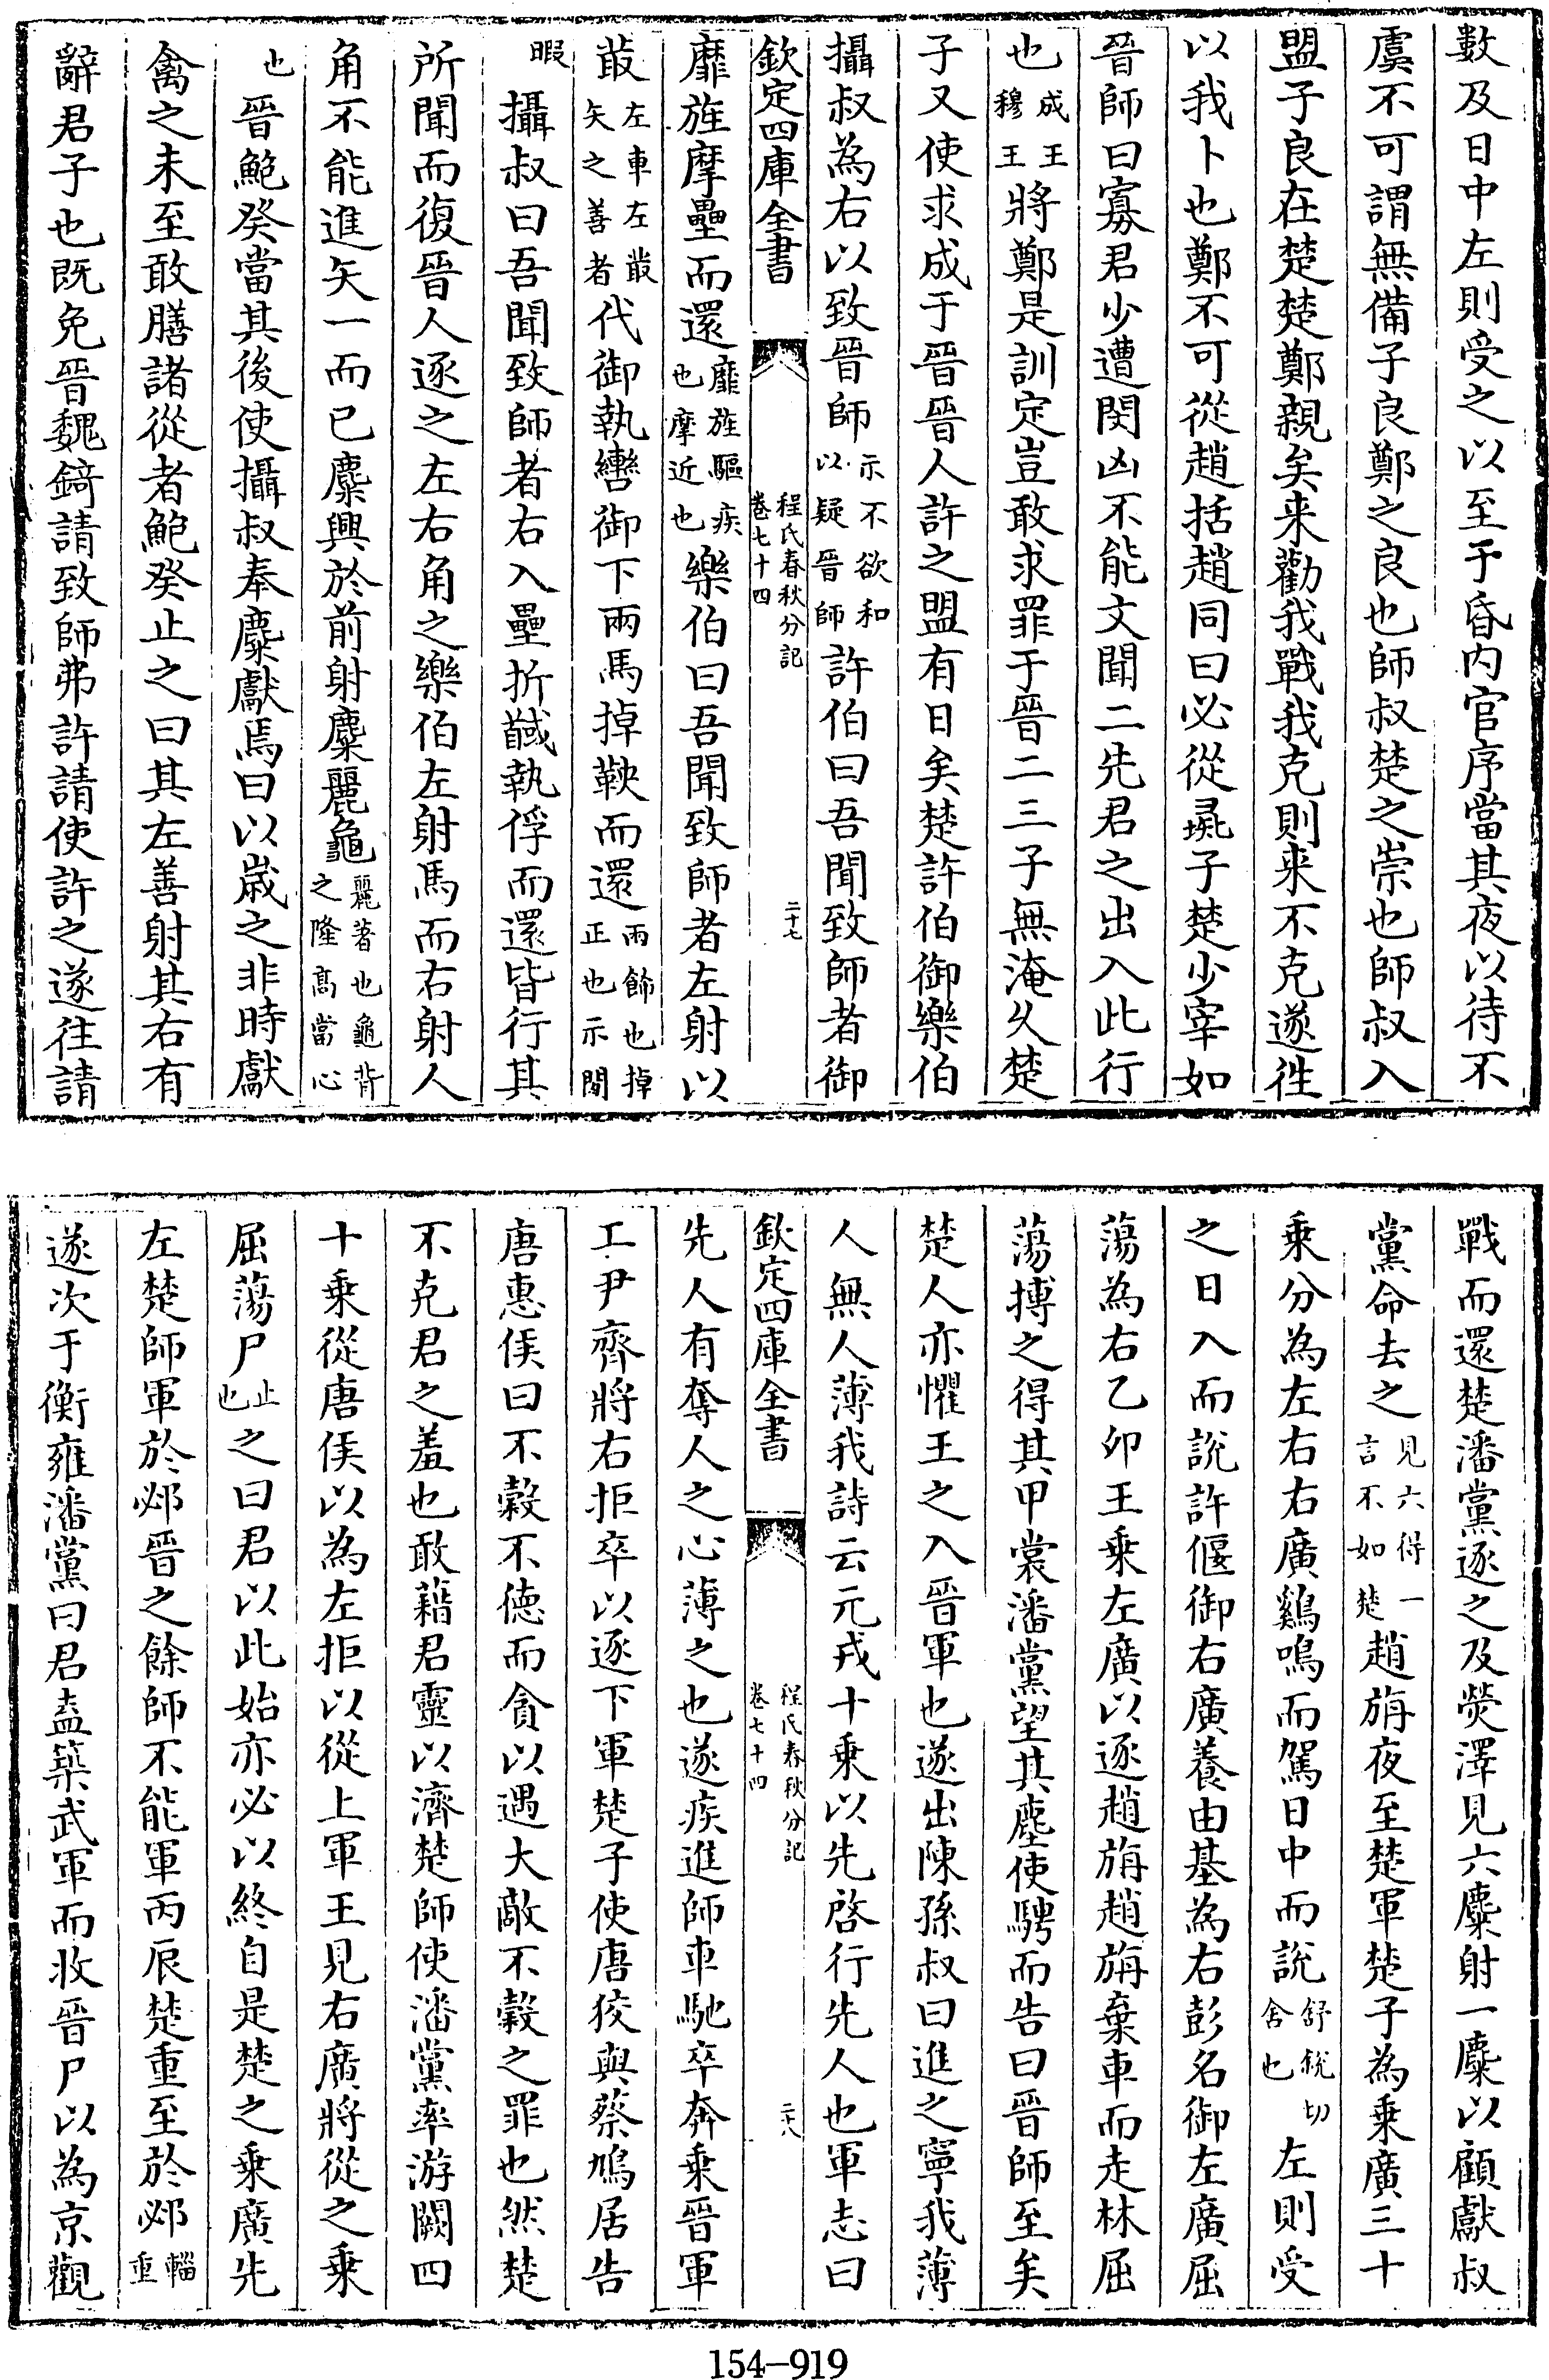 數及日中左則受之以至于昏内官序當其夜以待不
虞不可謂無備子良鄭之良也師叔楚之崇也師叔入
盟子良在楚楚鄭親矣来勸我戰我克則来不克遂徃
以我卜也鄭不可從趙括趙同曰必從彘子楚少宰如
晉師曰寡君少遭閔凶不能文聞二先君之出入此行
也成王穆王將鄭是訓定豈敢求罪于晉二三子無淹乆楚
子又使求成于晉晉人許之盟有日矣楚許伯御樂伯
攝叔為右以致晉師示不欲和以疑晉師許伯曰吾聞致師者御
欽定四庫全書
程氏春秋分記
卷七十四
二十七
靡旌摩壘而還靡旌驅疾也摩近也樂伯曰吾聞致師者左射以
菆左車左菆矢之善者代御執轡御下兩馬掉鞅而還兩飾也掉正也示閒
暇攝叔曰吾聞致師者右入壘折馘執俘而還皆行其
所聞而復晉人逐之左右角之樂伯左射馬而右射人
角不能進矢一而已麋興於前射麋麗龜麗著也龜背之隆髙當心
也晉鮑癸當其後使攝叔奉麋獻焉曰以歳之非時獻
禽之未至敢膳諸從者鮑癸止之曰其左善射其右有
辭君子也既免晉魏錡請致師弗許請使許之遂往請
戰而還楚潘黨逐之及熒澤見六麋射一麋以顧獻叔
黨命去之見六得一言不如楚趙旃夜至楚軍楚子為乗廣三十
乗分為左右右廣鷄鳴而駕日中而說舒銳切舍也左則受
之日入而說許偃御右廣養由基為右彭名御左廣屈
蕩為右乙卯王乗左廣以逐趙旃趙旃棄車而走林屈
蕩搏之得其甲裳潘黨望其塵使騁而告曰晉師至矣
楚人亦懼王之入晉軍也遂出陳孫叔曰進之寧我薄
人無人薄我詩云元戎十乗以先啓行先人也軍志曰
欽定四庫全書
程氏春秋分記
卷七十四
二十八
先人有奪人之心薄之也遂疾進師車馳卒奔乗晉軍
工尹齊將右拒卒以逐下軍楚子使唐狡與蔡鳩居告
唐惠侯曰不糓不徳而貪以遇大敵不糓之罪也然楚
不克君之羞也敢藉君靈以濟楚師使潘黨率游闕四
十乗從唐侯以為左拒以從上軍王見右廣將從之乗
屈蕩尸止也之曰君以此始亦必以終自是楚之乗廣先
左楚師軍於邲晉之餘師不能軍丙辰楚重至於邲輜重
遂次于衡雍潘黨曰君盍築武軍而收晉尸以為京觀
154-919